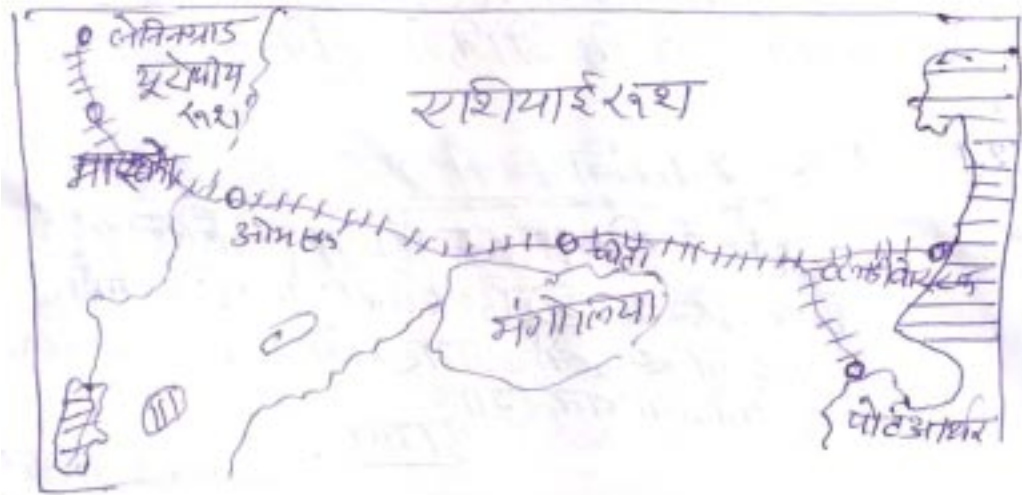 लेनिनग्राड
यूरोपीय
रूश
एशियाई रूश
मास्को
ओमस्क
चीता
ब्लाडीवास्टक
मंगोलिया
पोर्टआर्थर